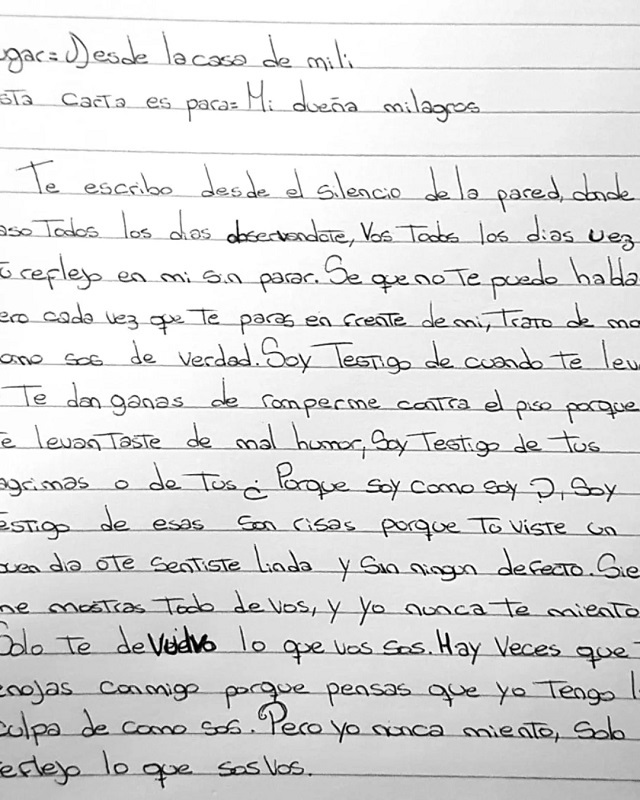 ugar= Desde la casa de mili
sta carta es para= Mi dueña milagros
Te escribo desde el silencio de la pared, donde
aso Todos los dias observandote, Vos Todos los dias vez
U reflejo en mi sin parar. Se que no Te puedo habla
ero cada vez que Te paras en frente de mi, Trato de mo
omo sos de verdad. Soy Testigo de cuando te lev
Te dan ganas de romperme contra el piso porque
e levanTaste de mal humor, Soy Testigo de tus
agrimas o de Tus ¿ Porque soy como soy ?, Soy
estigo de esas son risas porque Tuviste un
uen dia o te sentiste linda y sin ningun defecto. Sie
me mostras Todo de vos, y yo nunca te miento
Solo te devuelvo lo que vos sos. Hay Veces que T
enojas conmigo porque pensas que yo Tengo l
culpa de como sos. Pero yo nunca miento, Solo
eflejo lo que sos Vos.